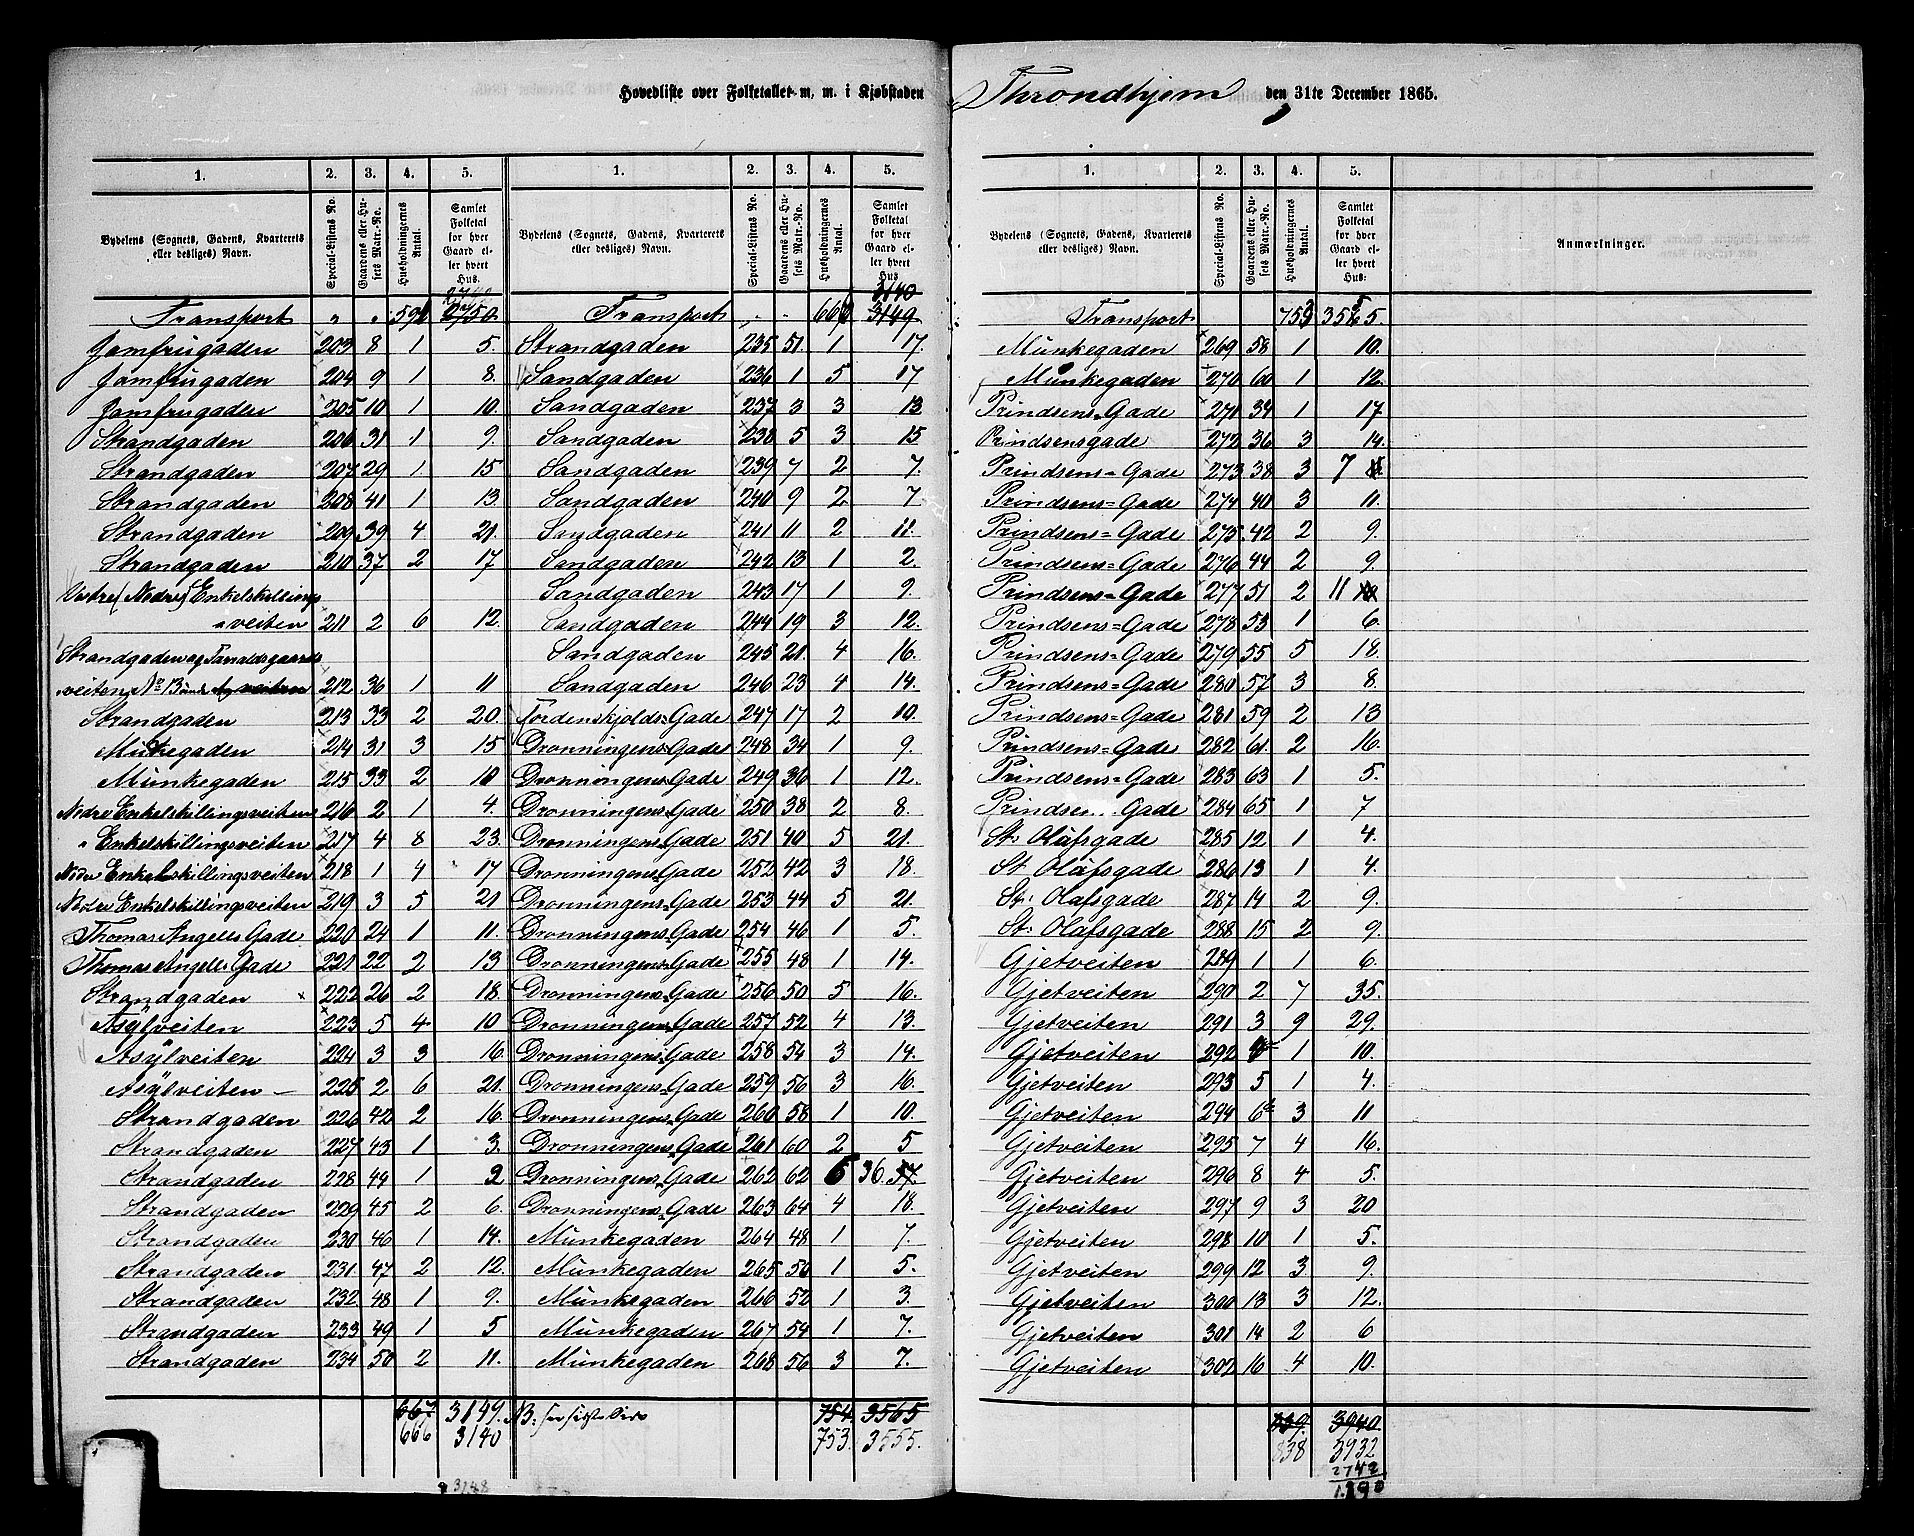 Hovedliste over Folketallet m. m. i Kjøbstaden Throndhjem den 31te December 1865.
1. 2. 3. 4. 5.
Bydelens (Sognets, Gadens, Kvarterets eller desliges) Navn. Special-Listens No. Gaardens eller Husets Matr.-No. Husholdningernes Antal. Samlet Folketal for hver Gaard eller hvert Hus.
Transport " "
Jomfrugaden 203 8 1 5.
Jomfrugaden 204 9 1 8.
Jomfrugaden 205 10 1 10.
Strandgaden 206 31 1 9.
Strandgaden 207 29 1 15
Strandgaden 208 41 1 13.
Strandgaden 209 39 4 21.
Strandgaden 210 37 2 17
(Nedre) Enkelskillings
veiten 211 2 6 12.
Strandgaden og
veiten No 13 212 36 1 11
Strandgaden 213 33 2 20.
Munkegaden 214 31 3 15
Munkegaden 215 33 2 10
Nedre Enkelskillingsveiten 216 2 1 4.
" Enkelskillingsveiten 217 4 8 23.
Nedre Enkelskillingsveiten 218 1 4 17
Nedre Enkelskillingsveiten 219 3 5 21
Thomas Angells Gade 220 24 1 11.
Thomas Angells Gade 221 22 2 13
Strandgaden 222 26 2 18.
Asylveiten 223 5 4 10
Asylveiten 224 3 3 16.
Asylveiten 225 2 6 21.
Strandgaden 226 42 2 16.
Strandgaden 227 43 1 3.
Strandgaden 228 44 1 2
Strandgaden 229 45 2 6.
Strandgaden 230 46 1 14.
Strandgaden 231 47 2 12.
Strandgaden 232 48 1 9.
Strandgaden 233 49 1 5
Strandgaden 234 50 2 11.
667 3149.
666 3140
3148
1. 2. 3. 4. 5.
Bydelens (Sognets, Gadens, Kvarterets eller desliges) Navn. Special-Listens No. Gaardens eller Husets Matr.-No. Husholdningernes Antal. Samlet Folketal for hver Gaard eller hvert Hus
3140
Transport 3149
Strandgaden 235 51. 1 17.
Sandgaden 236 1 5 17
Sandgaden 237 3 3 13
Sandgaden 238 5 3 15
Sandgaden 239 7 2 7.
Sandgaden 240 9 2 7
Sandgaden 241 11 2 11.
Sandgaden 242 13 1 2.
Sandgaden 243 17 1 9.
Sandgaden 244 19 3 12.
Sandgaden 245 21. 4 16.
Sandgaden 246 23 4 14.
Tordenskjolds-Gade 247 17 2 10.
Dronningens-Gade 248 34 1 9.
Dronningens-Gade 249 36 1 12.
Dronningens-Gade 250 38 2 8.
Dronningens-Gade 251 40 5 21.
Dronningens-Gade 252 42 3 18.
Dronningens-Gade 253 44 5 21.
Dronningens-Gade 254 46 1 5.
Dronningens-Gade 255 48 1 14.
Dronningens-Gade 256 50 5 16.
Dronningens-Gade 257 52 4 13.
Dronningens-Gade 258 54 3 14.
Dronningens-Gade 259 56 3 16.
Dronningens-Gade 260 58 1 10.
Dronningens-Gade 261 60 2 5
Dronningens-Gade 262 62 6 36.
Dronningens-Gade 263 64 4 18.
Munkegaden 264 48 1 7.
Munkegaden 265 50 1 5.
Munkegaden 266 52 1 3.
Munkegaden 267 54 1 7.
Munkegaden 268 56 3 7.
NB: 754 3565
753. 3555.
1. 2. 3. 4. 5.
Bydelens (Sognets, Gadens, Kvarterets eller desliges) Navn. Special-Listens No. Gaardens eller Husets Matr.-No. Husholdningernes Antal. Samlet Folketal for hver Gaard eller hvert Hus: Anmærkninger.
Transport
Munkegaden 269 58 1 10.
Munkegaden 270 60 1 12.
Prindsens-Gade 271 34 1 17
Prindsensgade 272 36 3 14.
Prindsens-Gade 273 38 3 7
Prindsens-Gade 274 40 3 11.
Prindsens-Gade 275. 42 2 9.
Prindsens-Gade 276 44 2 9.
Prindsens-Gade 277 51 2 11
Prindsens-Gade 278 53 1 6.
Prindsens-Gade 279 55 5 18.
Prindsens-Gade 280 57 3 8.
Prindsens-Gade 281 59 2 13
Prindsens-Gade 282 61 2 16.
Prindsens-Gade 283 63 1 5.
Prindsen Gade 284 65 1 7
St: Olafsgade 285 12 1 4.
St Olafsgade 286 13 1 4.
St: Olafsgade 287 14 2 9.
St: Olafsgade 288 15 2 9.
Gjetveiten 289 1 1 6.
Gjetveiten 290 2 7 35.
Gjetveiten 291 3 9 29.
Gjetveiten 292 1 10.
Gjetveiten 293 5 1 4.
Gjetveiten 294 6 3 11
Gjetveiten 295 7 4 16.
Gjetveiten 296 8 4 5.
Gjetveiten 297 9 3 20
Gjetveiten 298 10 1 5.
Gjetveiten 299 12 3 9.
Gjetveiten 300 13 3 12.
Gjetveiten 301 14 2 6
Gjetveiten 302 16 4 10.
839 3940
838 3932
2742
1190